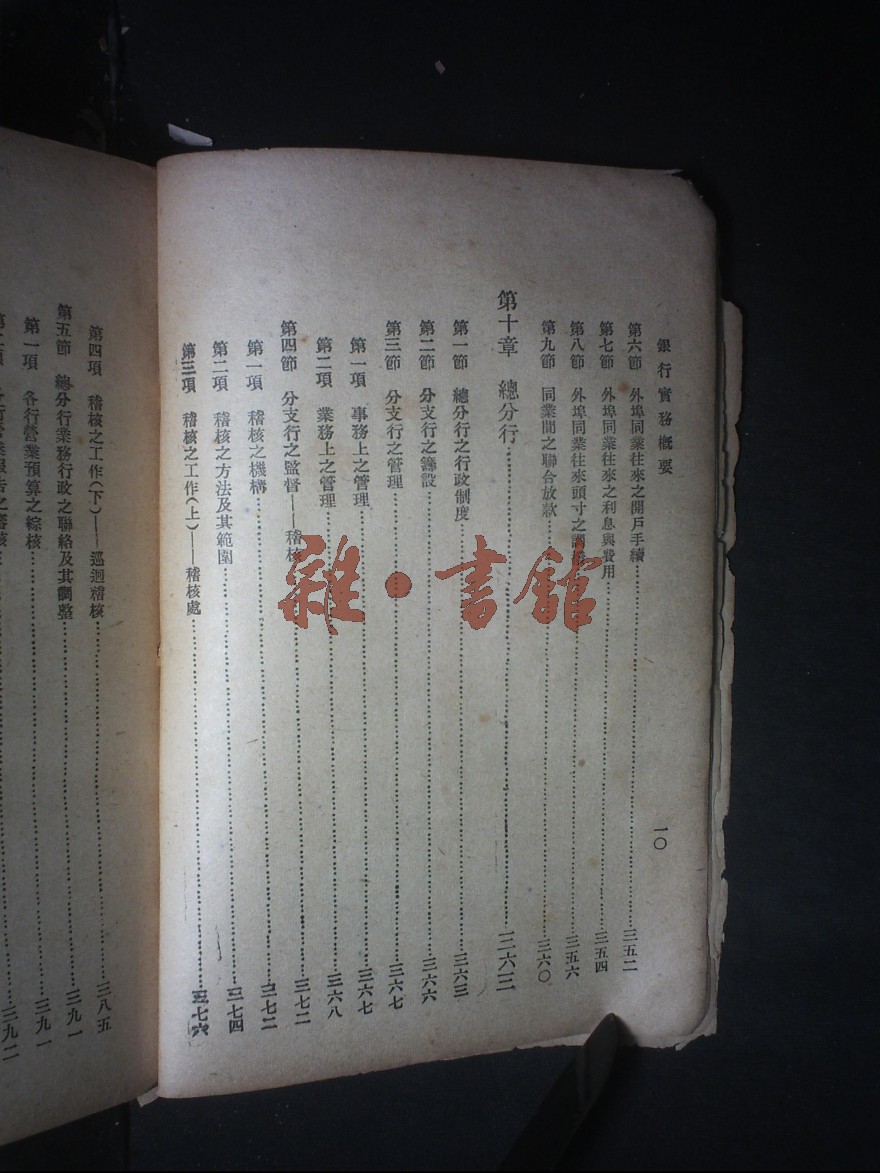 銀行實務概要
一〇
第六節 外埠同業往來之開戶手續……三五二
第七節 外埠同業往來之利息與費用……三五四
第八節 外埠同業往來頭寸之……三五六
第九節 同業間之聯合放款……三六〇
第十章 總分行……三六三
第一節 總分行之行政制度……三六三
第二節 分支行之籌設……三六六
第三節 分支行之管理……三六七
第一項 事務上之管理……三六七
第二項 業務上之管理……三六八
第四節 分支行之監督——稽核……三七二
第一項 稽核之機構……三七二
第二項 稽核之方法及其範圍……三七四
第三項 稽核之工作(上)——稽核處……三七六
第四項 稽核之工作(下)——巡迴稽核……三八五
第五節 總分行業務行政之聯絡及其調整……三九一
第一項 各行營業預算之綜核……三九一
三九二
雜·書館